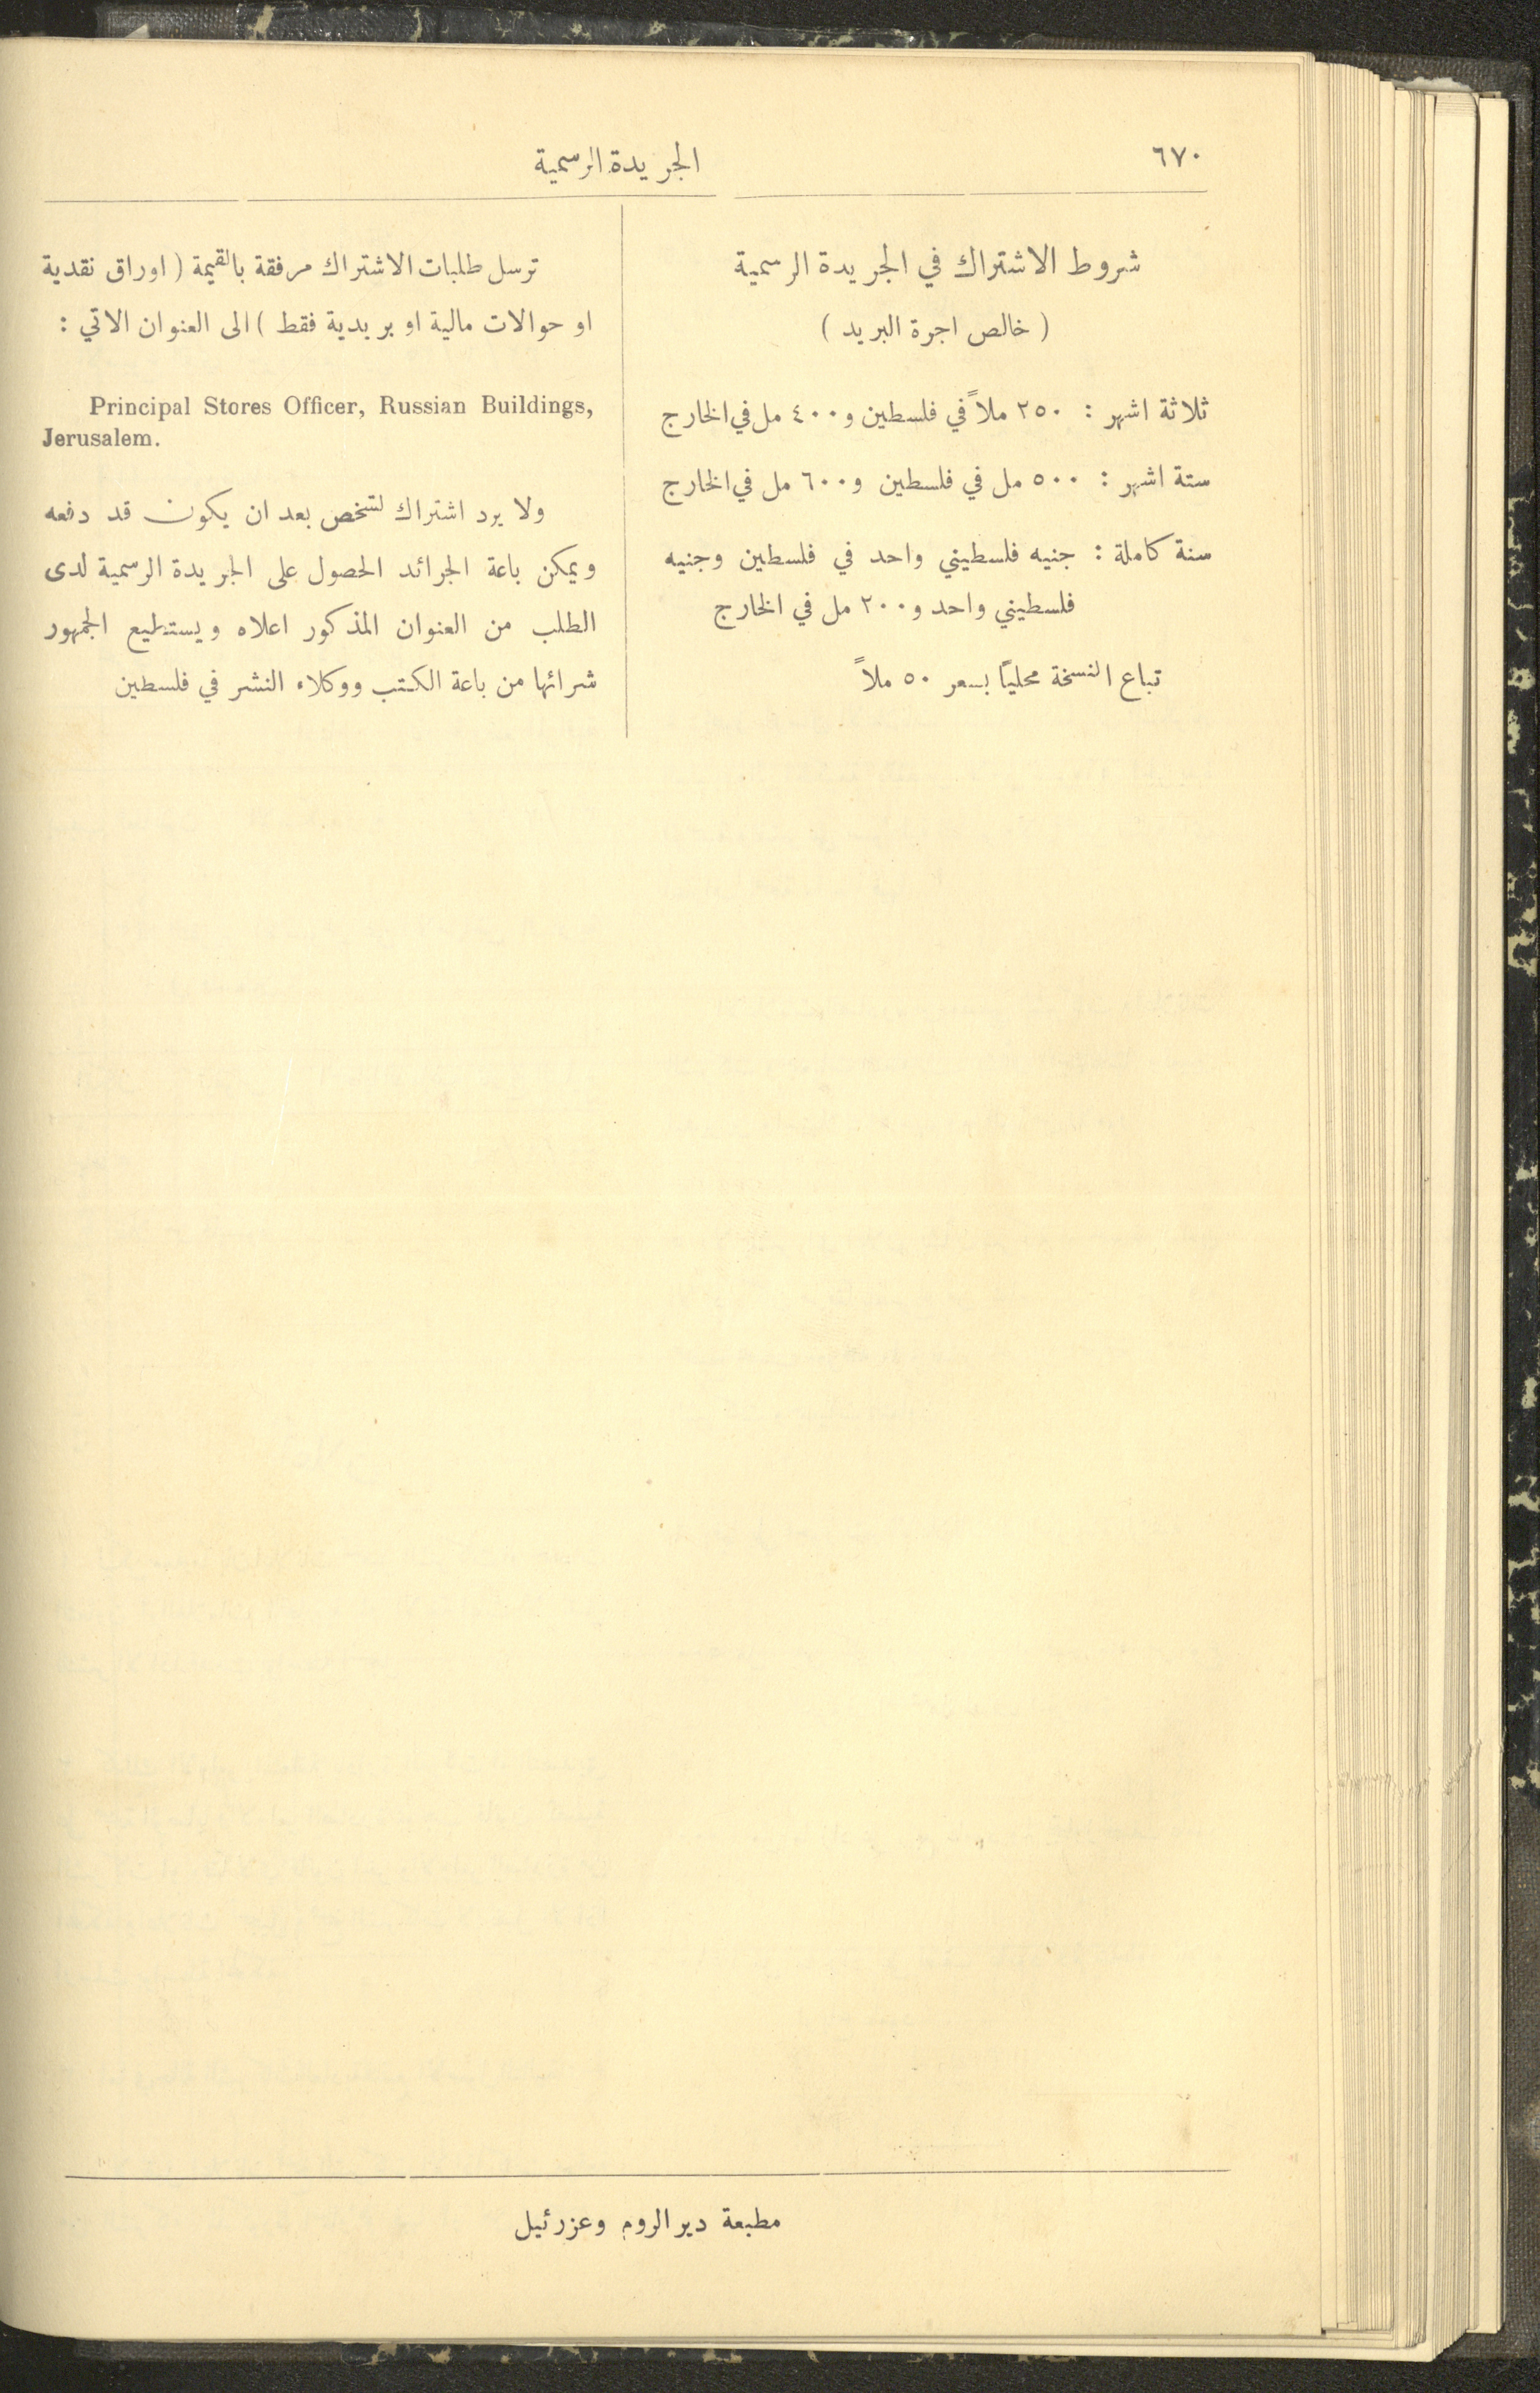 ٦٧٠
الجريدة الرسمية
شروط الاشتراك في الجريدة الرسمية
( خالص اجرة البريد )
ثلاثة اشهر : ٢٥٠ ملاً في فلسطين و٤٠٠ مل في الخارج
ستة اشهر : ٥٠٠ مل في فلسطين و٦٠٠ مل في الخارج
سنة كاملة : جنيه فلسطيني واحد في فلسطين وجنيه
فلسطيني واحد و٢٠٠ مل في الخارج
تباع النسخة محليًا بسعر ٥٠ ملاً
ترسل طلبات الاشتراك مرفقة بالقيمة ( اوراق نقدية
او حوالات مالية او بريدية فقط ) الى العنوان الاتي :
Principal Stores Officer, Russian Buildings,
Jerusalem.
ولا يرد اشتراك لشخص بعد ان يكون قد دفعه
ويمكن باعة الجرائد الحصول على الجريدة الرسمية لدى
الطلب من العنوان المذكور اعلاه ويستطيع الجمهور
شرائها من باعة الكتب ووكلاء النشر في فلسطين
مطبعة دير الروم وعزرئيل